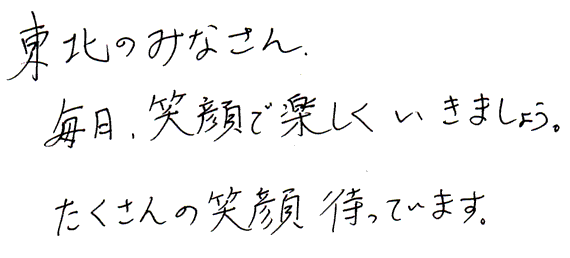 東北のみなさん.
毎日、笑顔で楽しくいきましょう。
たくさんの笑顔待っています。